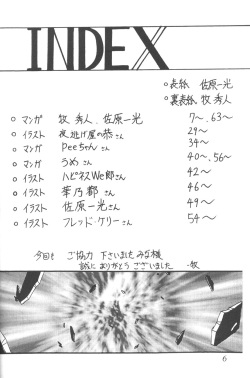 INDEX
○表紙 佐原一光
○裏表紙 牧秀人
○マンガ 牧秀人、佐原一光 7~、63~
○イラスト 夜逃げ屋の恭さん 29~
○マンガ Peeちゃん 34~
○マンガ うめさん 40~、56~
○イラスト ハピネスWe郎さん 42~
○イラスト 華乃郁さん 46~
○イラスト 佐原一光さん 49~
○イラスト フレッド・ケリーさん 54~
今回も ご協力下さいましたみな様
誠にありがとうございました -牧
6